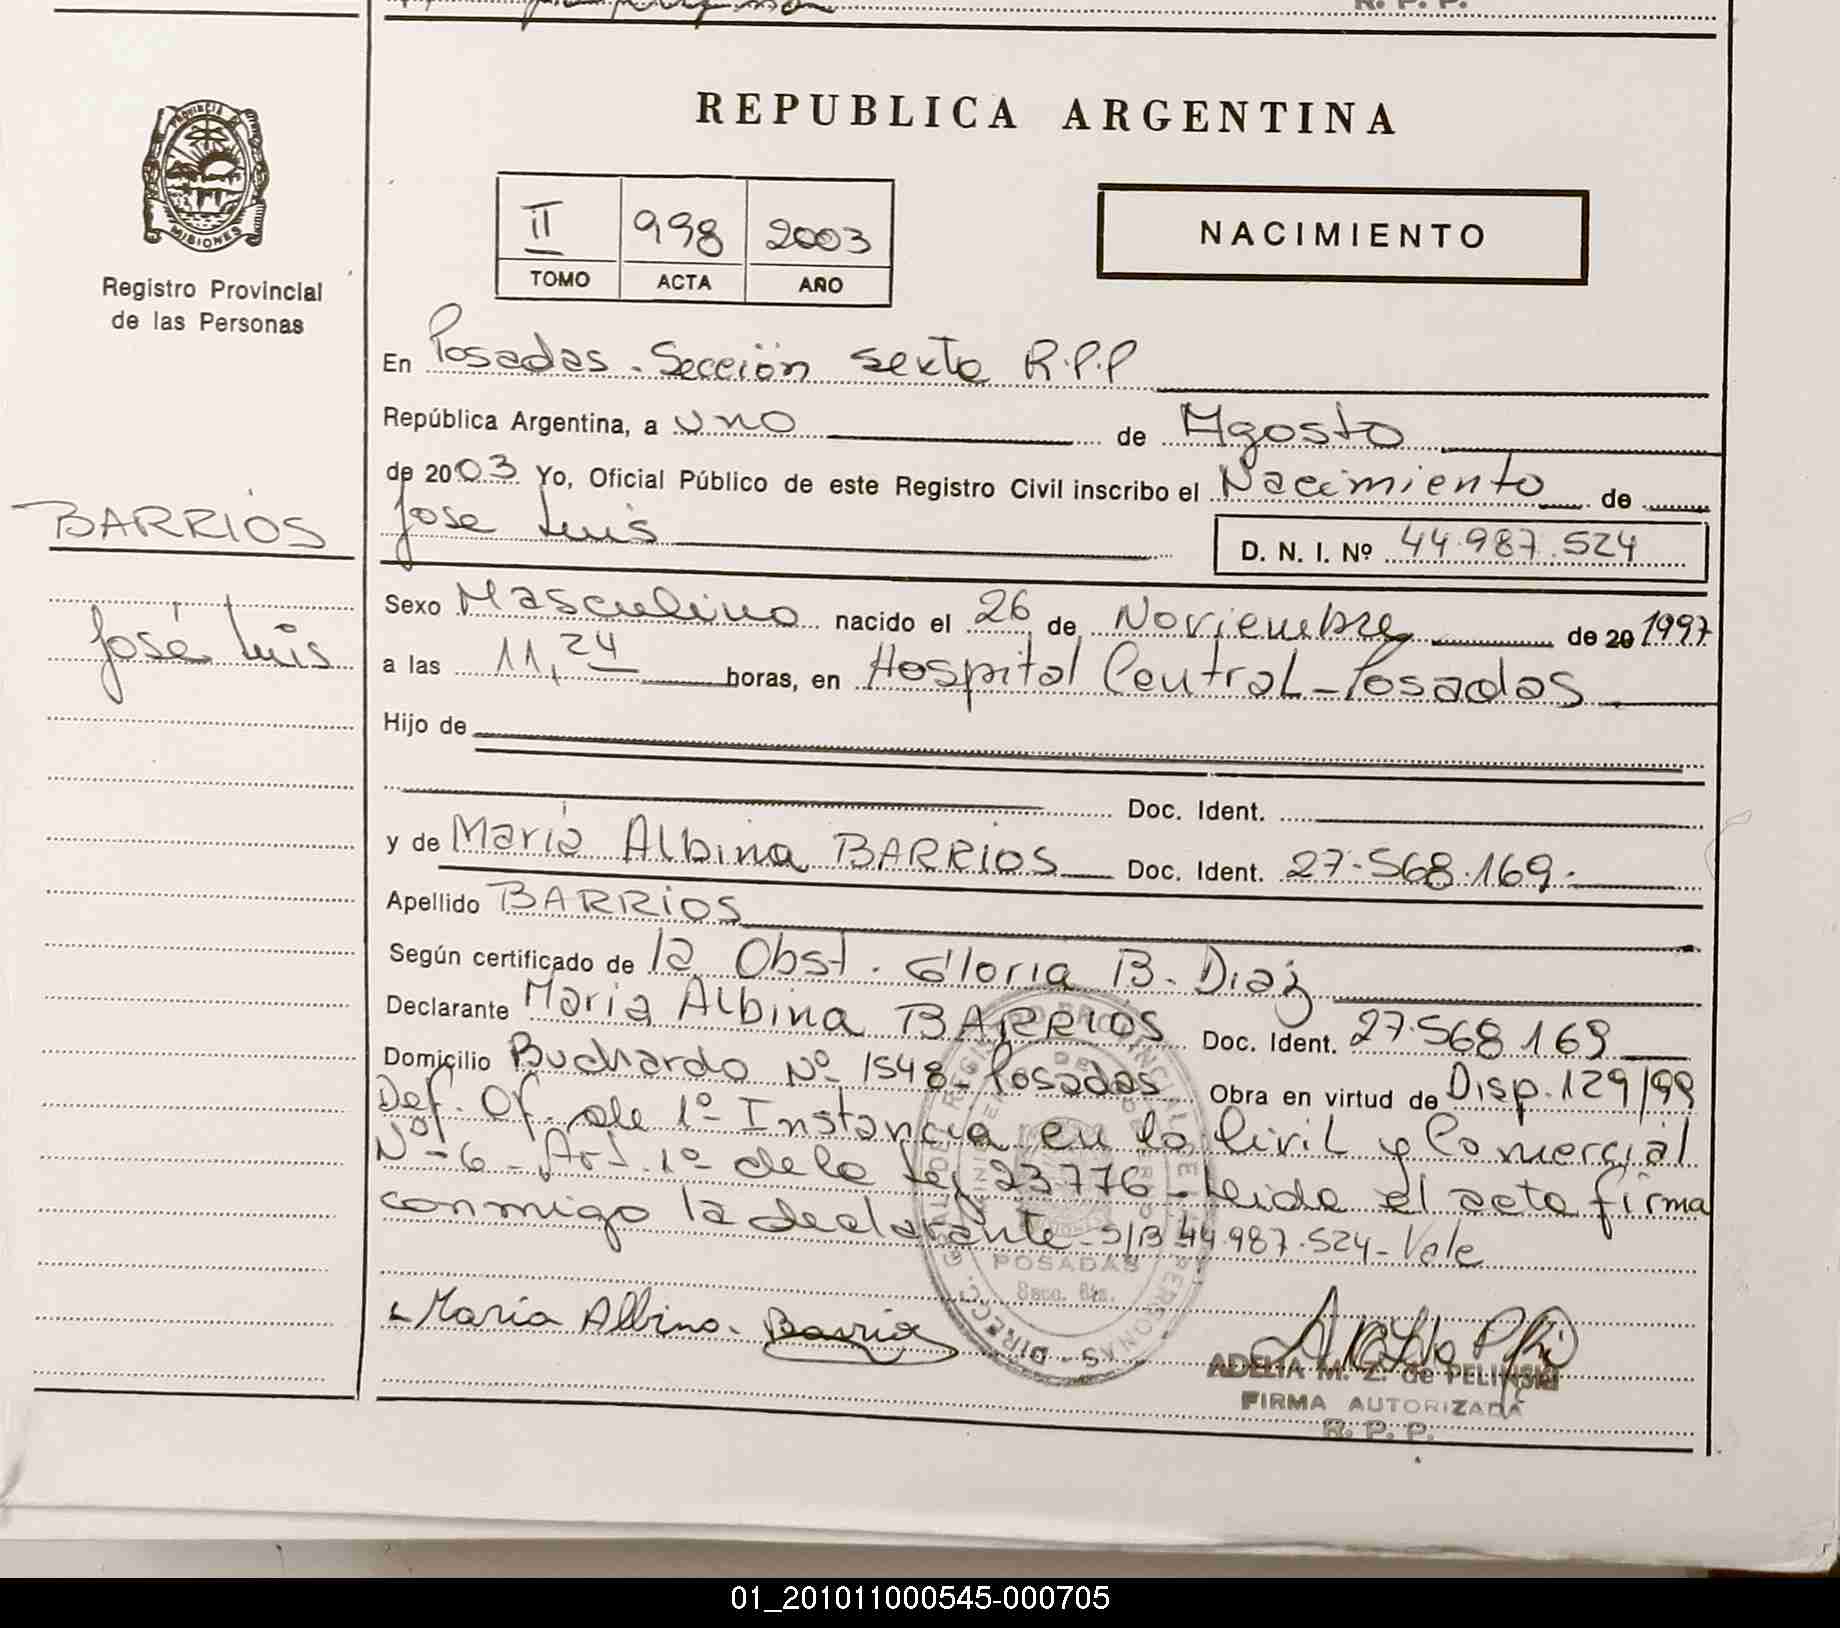 R. P. P.
REPUBLICA ARGENTINA
PROVINCIA DE
MISIONES
Registro Provincial
de las Personas
II 998 2003
TOMO ACTA AÑO
NACIMIENTO
En Posadas. Sección sexta R.P.P
República Argentina, a uno de Agosto
de 2003 Yo, Oficial Público de este Registro Civil inscribo el Nacimiento de
Jose Luis
D. N. I. Nº 44.987.524
BARRIOS
José Luis
Sexo Masculino nacido el 26 de Noviembre de 20 1997
a las 11,24 horas, en Hospital Central - Posadas
Hijo de
Doc. Ident.
y de María Albina BARRIOS Doc. Ident. 27.568.169.-
Apellido BARRIOS
Según certificado de la Obst. Gloria B. Diaz
Declarante Maria Albina BARRIOS Doc. Ident. 27.568 169
Domicilio Buchardo Nº 1548 - Posadas Obra en virtud de Disp. 129/99
Def. Of. de 1º Instancia en lo Civil y Comercial
Nº 6 - Art. 1º de la Ley 23776 - Leida el acta firma
conmigo la declarante - S/B 44.987.524 - Vale
POSADAS
Secc. 6ta.
Maria Albina Barrios
ADELIA M. Z. de PELINSKI
FIRMA AUTORIZADA
R. P. P.
01_201011000545-000705